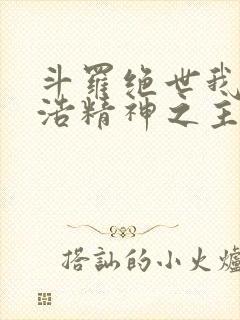 斗羅绝世我
浩精神之主
搭訕的小火爐